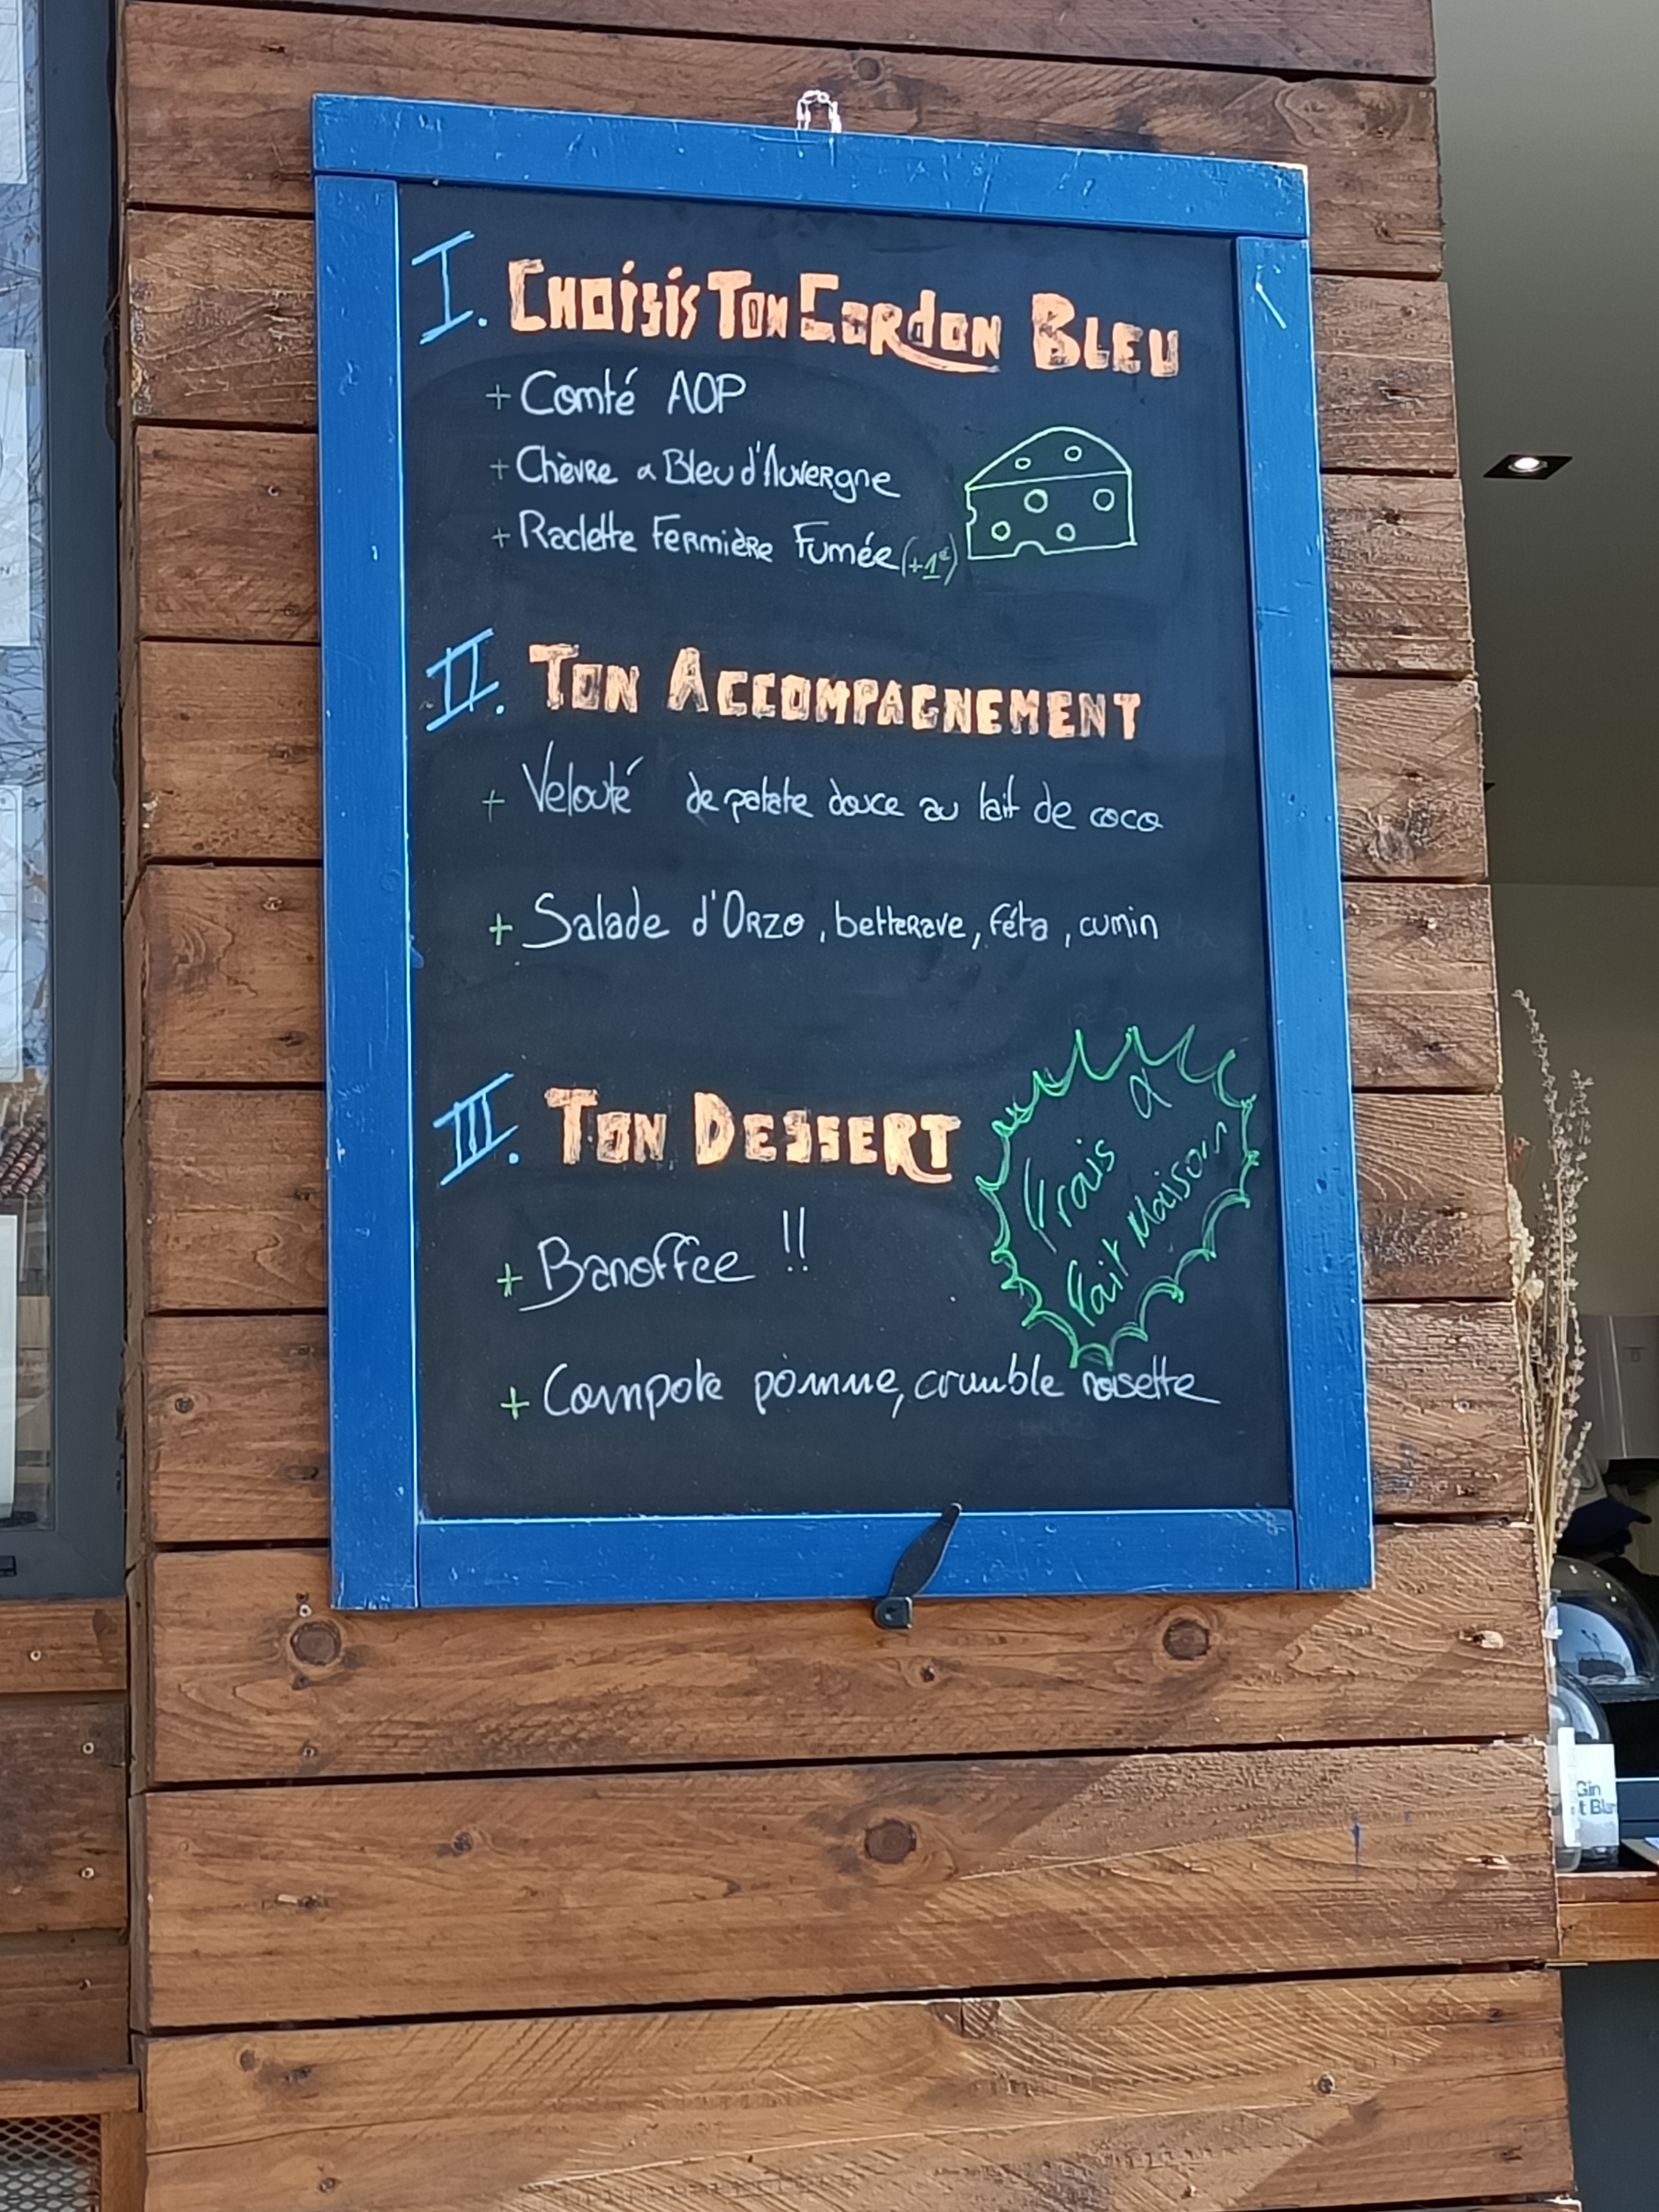 I. CHOISIS TON CORDON BLEU
+ Comté AOP
+ Chèvre & Bleu d'Auvergne
+ Raclette Fermière Fumée (+1€)
II. TON ACCOMPAGNEMENT
+ Velouté de patate douce au lait de coco
+ Salade d'Orzo, betterave, féta, cumin
III. TON DESSERT
Frais &
Fait Maison
+ Banoffee !!
+ Compote pomme, crumble noisette
Gin